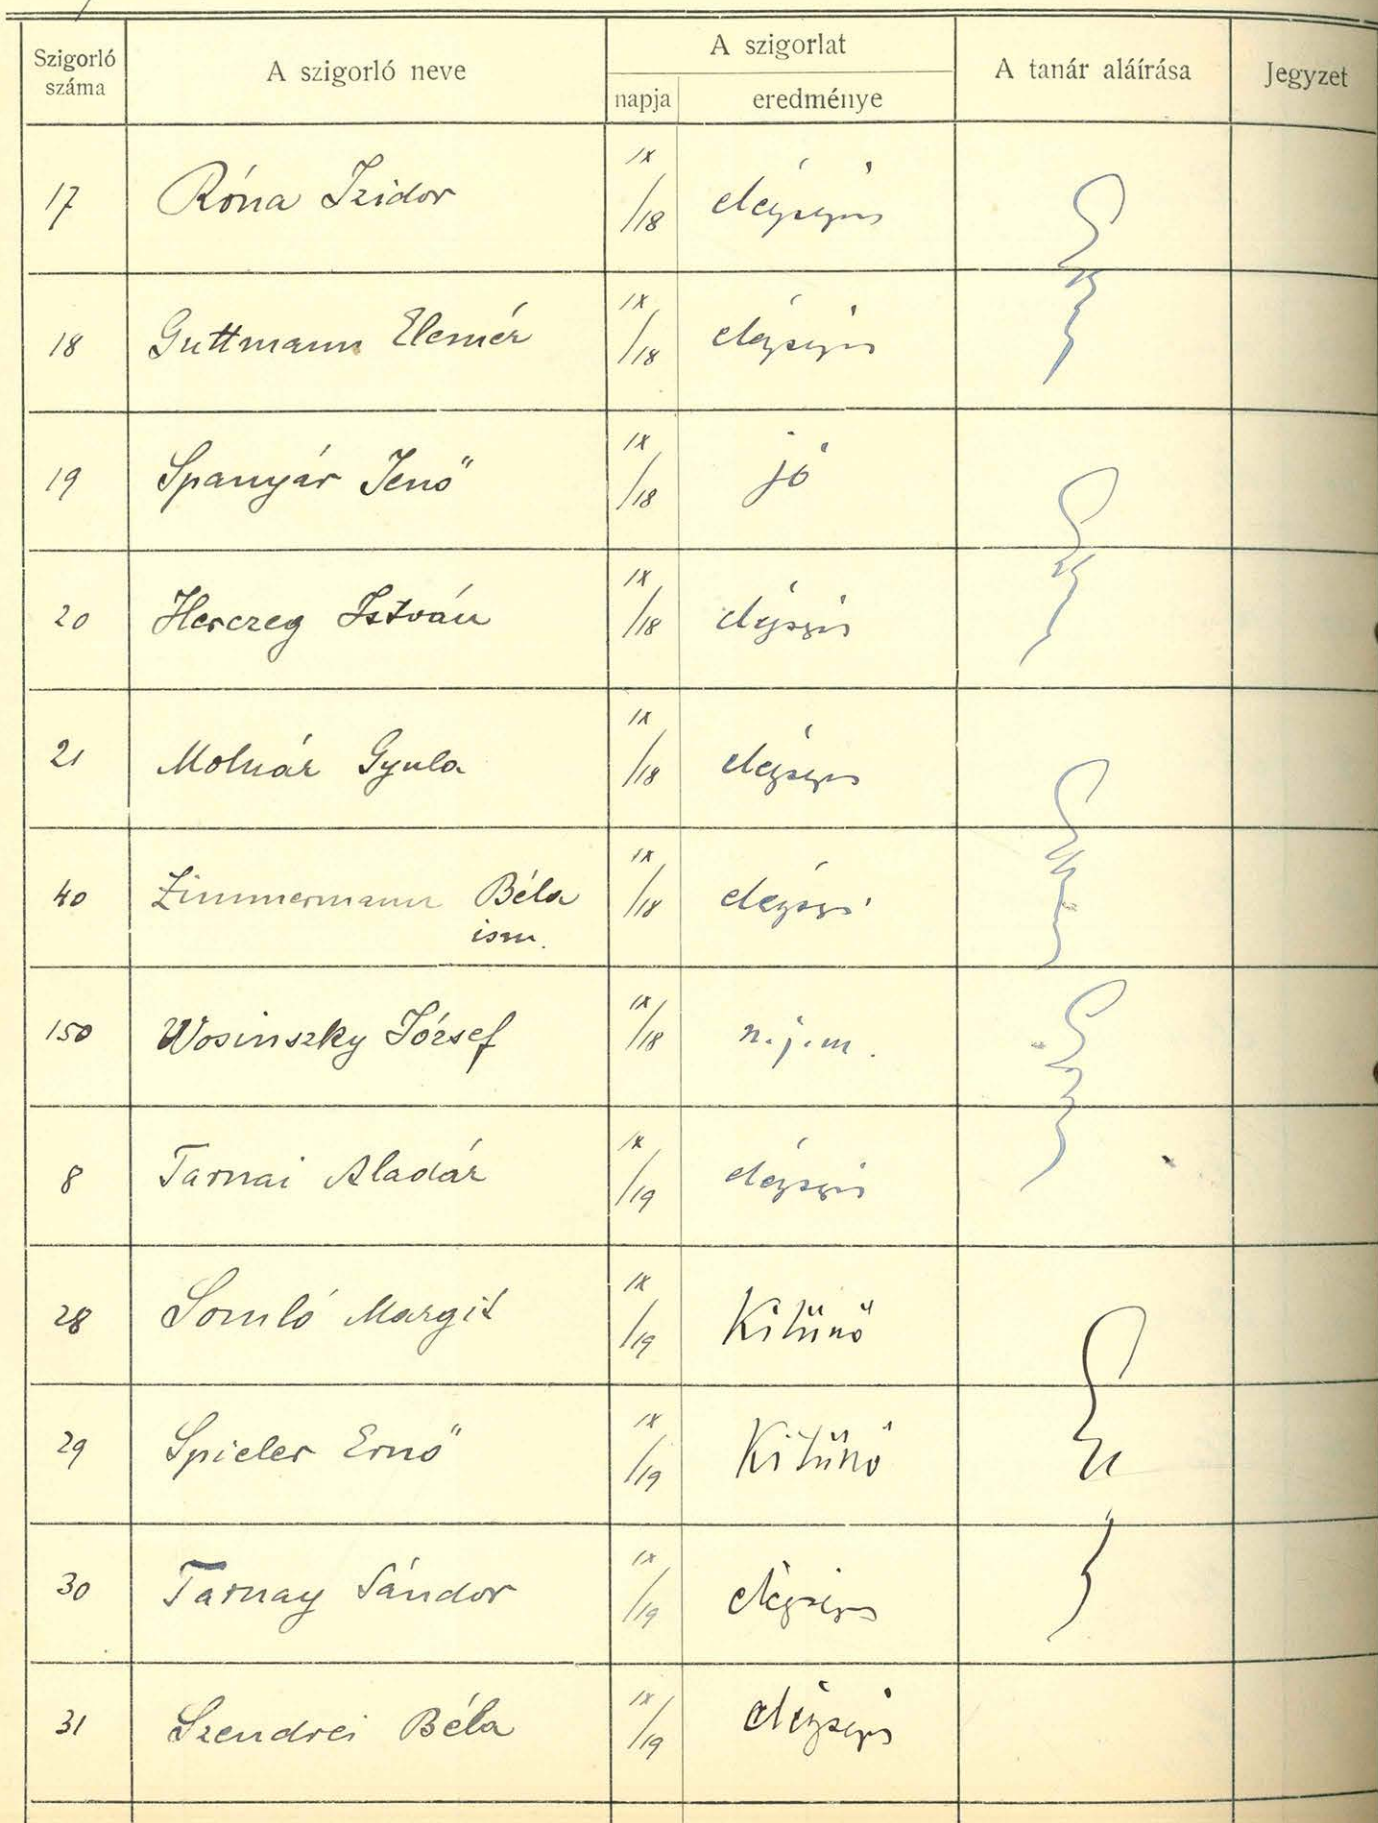 Szigorló száma A szigorló neve A szigorlat napja eredménye A tanár aláírása Jegyzet
17 Róna Izidor IX/18 elégséges
18 Guttmann Elemér IX/18 elégséges
19 Spanyár Jenő IX/18 jó
20 Herczeg István IX/18 elégséges
21 Molnár Gyula IX/18 elégséges
40 Zimmermann Béla IX/18 elégséges
ism.
150 Wosinszky József IX/18 n.j.m.
8 Tarnai Aladár IX/19 elégséges
28 Somló Margit IX/19 Kitünő
29 Spieler Ernő IX/19 Kitünő
30 Tarnay Sándor IX/19 elégséges
31 Szendrei Béla IX/19 elégséges